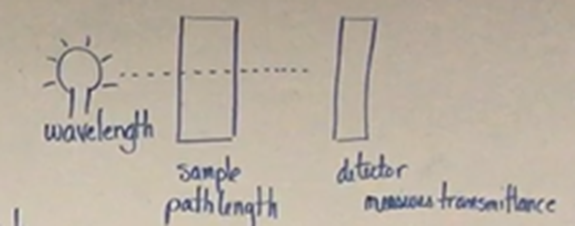 wavelength
sample
path length
detector
measures transmittance